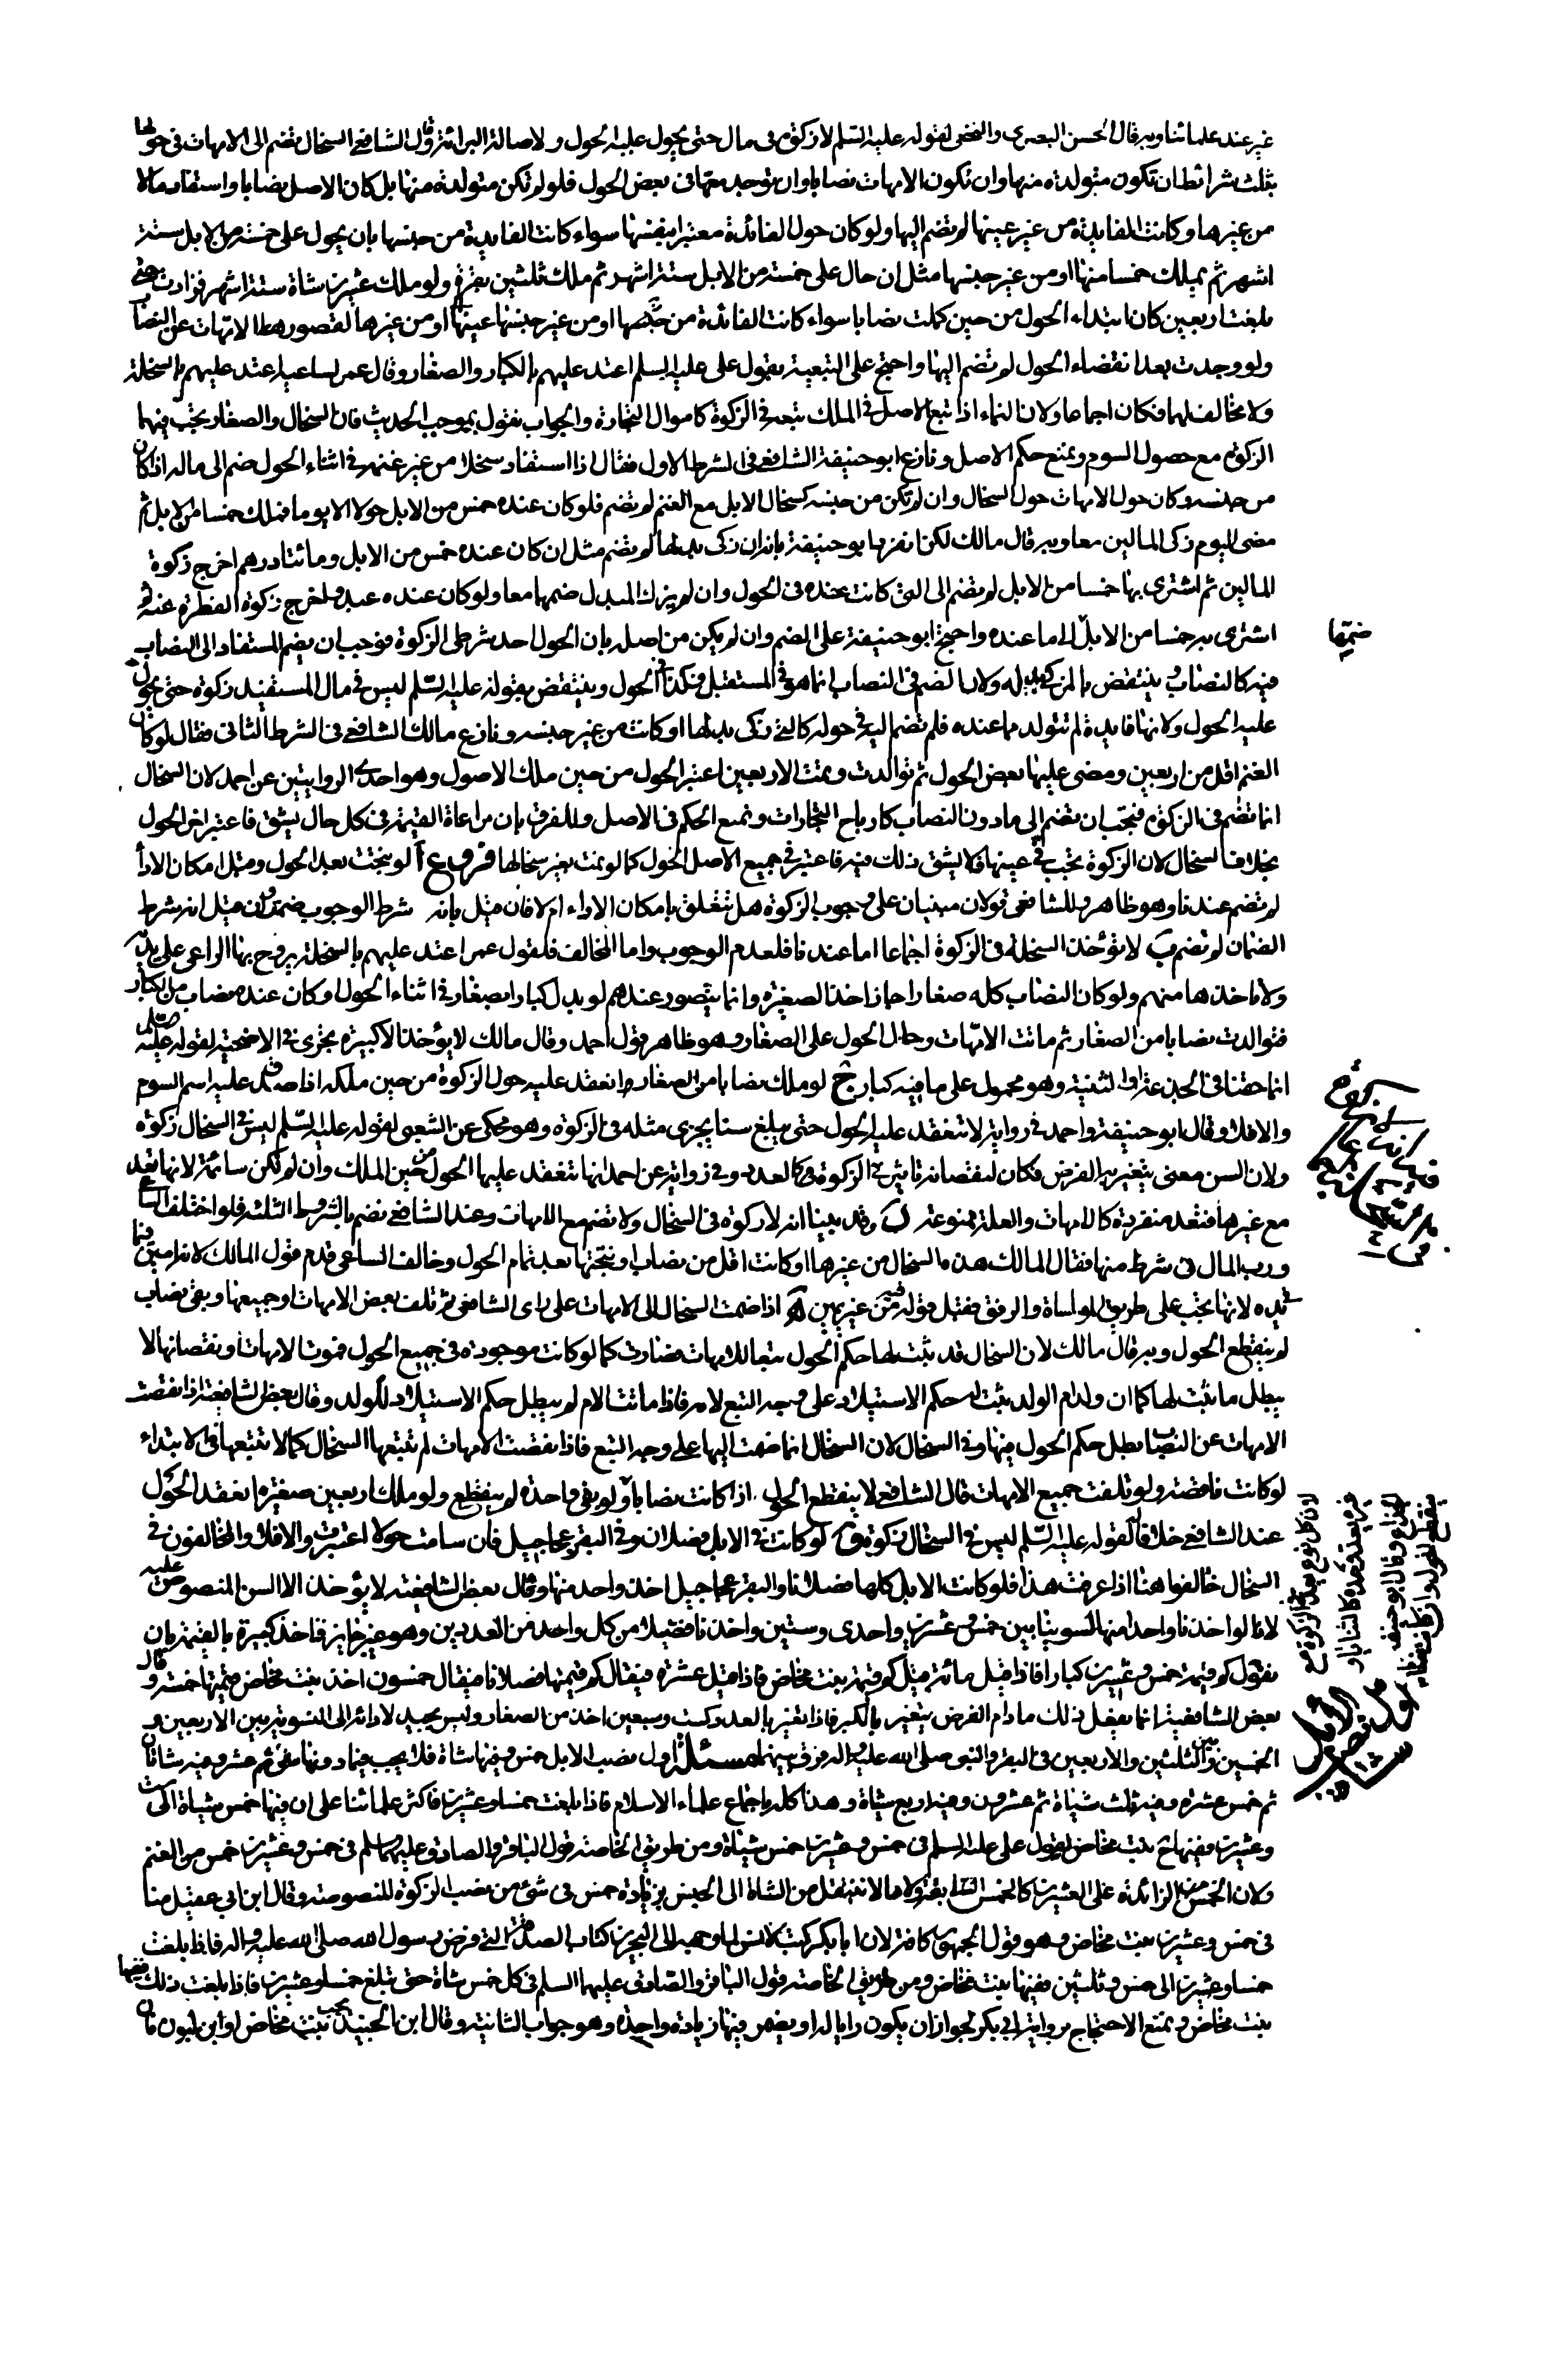 غير عند علمائنا وبه قال الحسن البصري والنخعي لقوله عليه السلم لا زكوة في مال حتى يحول عليه الحول ولاصالة البرائة وقال الشافعي السخال تضم الى الامهات في حولها
بثلث شرائط ان تكون متولدة منها وان تكون الامهات نصابا وان توجد معها في بعض الحول فلو لم تكن متولدة منها بل كان الاصل نصابا واستفاد مالا
من غيرها وكانت الفايدة من غير عينها لم تضم اليها ولو كان حول الفائدة معتبرا بنفسها سواء كانت الفايدة من جنسها بان يحول على خمسة من الابل ستة
اشهر ثم يملك خمسا منها او من غير جنسها مثل ان حال على خمسة من الابل ستة اشهر ثم ملك ثلثين بقرة ولو ملك عشرين شاة ستة اشهر فزادت حتى
بلغت اربعين كان ابتداء الحول من حين كملت نصابا سواء كانت الفائدة من جنسها او من غير جنسها عينها او من غيرها لقصور هذا الامهات عن النصاب
ولو وجدت بعد انقضاء الحول لم تضم اليها واحتج على التبعية بقول علي عليه السلم اعتد عليهم بالكبار والصغار وقال عمر لساعيه اعتد عليهم بالسخلة
ولا مخالف لهما فكان اجماعا ولان النماء اذا تبع الاصل في الملك تبعه في الزكوة كاموال التجارة والجواب نقول بموجب الحديث فان السخال والصغار يجب فيهما
الزكوة مع حصول السوم ونمنع حكم الاصل ونازع ابو حنيفة الشافعي في الشرط الاول فقال اذا استفاد سخلا من غير غنمه في اثناء الحول ضم الى ماله اذا كان
من جنسه وكان حول الامهات حول السخال وان لم تكن من جنسه كسخال الابل مع الغنم لم تضم فلو كان عنده خمس من الابل حولا الا يوما فملك خمسا من الابل ثم
مضى اليوم زكى المالين معا وبه قال مالك لكن انفرد ابو حنيفة بانه ان زكى بدلها لم تضم مثل ان كان عنده خمس من الابل ومائتا درهم اخرج زكوة
المالين ثم اشترى بها خمسا من الابل لم تضم الى التي كانت عنده في الحول وان لم يزك المبدل ضمها معا ولو كان عنده عبد واخرج زكوة الفطرة عنه ثم
اشترى به خمسا من الابل الى ما عنده واحتج ابو حنيفة على الضم وان لم يكن من اصله بان الحول احد شرطى الزكوة فوجب ان يضم المستفاد الى النصاب
ضمها
فيه كالنصاب وينتقض بالمزكى بدله ولان الضم في النصاب انما هو في المستقبل فكذا في الحول وينتقض بقوله عليه السلم ليس في مال المستفيد زكوة حتى يحول
عليه الحول ولانها فايدة لم تتولد مما عنده فلم تضم اليه في حوله كالتي زكى بدلها او كانت من غير جنسه ونازع مالك الشافعي في الشرط الثاني فقال لو كان
الغنم اقل من اربعين ومضى عليها بعض الحول ثم توالدت وتمت الاربعين اعتبر الحول من حين ملك الاصول وهو احدى الروايتين عن احمد لان السخال
انما تضم في الزكوة فيجب ان تضم الى ما دون النصاب كارباح التجارات ونمنع الحكم في الاصل وللفرق بان مراعاة القيمة في كل حال يشق فاعتبر اخر الحول
بخلاف السخال لان الزكوة تجب في عينها فلا يشق ذلك فيه فاعتبر في جميع الاصل الحول كما لو تمت بغير سخالها فروع آ لو نتجت بعد الحول وقبل امكان الاداء
لم تضم عندنا وهو ظاهر وللشافعي قولان مبنيان على وجوب الزكوة هل تتعلق بامكان الاداء ام لا فان قيل بانه شرط الوجوب ضمت وان قيل انه شرط
الضمان لم تضم ب لا تؤخذ السخلة في الزكوة اجماعا اما عندنا فلعدم الوجوب واما المخالف فلقول عمر اعتد عليهم بالسخلة يروح بها الراعي على يديه
ولا تاخذها منهم ولو كان النصاب كله صغارا جاز اخذ الصغيرة وانما يتصور عندهم لو بدل كبارا بصغار في اثناء الحول او كان عنده نصاب من الكبار
فتوالدت نصابا من الصغار ثم ماتت الامهات وحال الحول على الصغار وهو ظاهر قول احمد وقال مالك لا يؤخذ الا كبيرة تجزي في الاضحية لقوله عليه السلم
انما حقنا في الجذعة او الثنية وهو محمول على ما فيه كبار ج لو ملك نصابا من الصغار انعقد عليه حول الزكوة من حين ملكه اذا صدق عليه اسم السوم
والا فلا وقال ابو حنيفة واحمد في رواية لا تنعقد عليه الحول حتى يبلغ سنا يجزى مثله في الزكوة وهو محكى عن الشعبي لقوله عليه السلم ليس في السخال زكوة
ولان السن معنى يتغير به الفرض فكان لنقصانه تاثير في الزكوة كالعدد وفي رواية عن احمد انها تنعقد عليها الحول من حين الملك وان لم تكن سائمة لانها تعد
مع غيرها فتعد منفردة كالامهات والعلة ممنوعة د قد بينا انه لا زكوة في السخال ولا تضم مع الامهات وعند الشافعي تضم بالشروط الثلثة فلو اختلف الساعي
ورب المال في شرط منها فقال المالك هذه السخال من غيرها او كانت اقل من نصاب او نتجتها بعد تمام الحول وخالف الساعي قدم قول المالك لانه امين فيما
في يده لانها تجب على طريق المواساة والرفق فقبل قوله فيه من غير يمين ه اذا ضمت السخال الى الامهات على راى الشافعي ثم تلف بعض الامهات او جميعها وبقى نصاب
لم ينقطع الحول وبه قال مالك لان السخال قد يثبت لها حكم الحول تبعا للامهات فصارت كما لو كانت موجودة في جميع الحول فموت الامهات ونقصانها لا
يبطل ما ثبت لها كما ان ولد ام الولد يثبت له حكم الاستيلاد على وجه التبع لامه فاذا ماتت الام لم يبطل حكم الاستيلاد للولد وقال بعض الشافعية اذا نقصت
الامهات عن النصاب بطل حكم الحول فيها وفي السخال لان السخال انما ضمت اليها على وجه التبع فاذا نقصت الامهات لم تتبعها السخال كما لا تتبعها في الابتداء
لو كانت ناقصة ولو تلفت جميع الامهات قال الشافعي لا ينقطع الحول اذا كانت نصابا ولو بقى واحدة لم ينقطع ولو ملك اربعين صغيرة انعقد الحول
عند الشافعي خلافا لقوله عليه السلم ليس في السخال زكوة و لو كانت في الابل فصلان وفي البقر عجاجيل فان سامت حولا اعتبرت والا فلا والمخالفون في
السخال خالفوا هنا اذا عرفت هذا فلو كانت الابل كلها فصلانا والبقر عجاجيل اخذ واحد منها وقال بعض الشافعية لا يؤخذ الا السن المنصوص عليه
لانا لو اخذنا واحدا منها لسوينا بين خمس وعشرين واحدى وستين واخذنا فصيلا من كل واحد من العددين وهو غير جايز فتاخذ كبيرة بالقيمة بان
نقول كم قيمة خمس وعشرين كبارا فاذا قيل مائة قيل كم قيمة بنت مخاض فاذا قيل عشرة فيقال كم قيمتها فصلانا فيقال خمسون اخذ بنت مخاض قيمتها خمسة وقال
بعض الشافعية انما يفعل ذلك ما دام الفرض يتغير بالكبر فاذا تغير بالعدد كست وسبعين اخذ من الصغار وليس بجيد لادائه الى التسوية بين الاربعين و
الخمسين وبين الثلثين والاربعين في البقر والنبي صلى الله عليه واله فرق بينهما مسئلة اول نصب الابل خمس وفيها شاة فلا يجب فيما دونها شئ ثم عشر وفيه شاتان
ثم خمس عشرة وفيه ثلث شياة ثم عشرون وفيه اربع شياة وهذا كله باجماع علماء الاسلام فاذا بلغت خمسا وعشرين فاكثر علمائنا على ان فيها خمس شياة الى ست
وعشرين ففيها بنت مخاض لقول علي عليه السلم في خمس وعشرين خمس شياة ومن طريق الخاصة قول الباقر والصادق عليهما السلم في خمس وعشرين خمس من الغنم
ولان الخمس الزائدة على العشرين كالخمس السابقة ولانها لا تنتقل من الشاة الى الجنس بزيادة خمس في شئ من نصب الزكوة المنصوصة وقال ابن ابي عقيل منا
في خمس وعشرين بنت مخاض وهو قول الجمهور كافة لان ابا بكر كتب لانس لما وجهه الى البحرين كتاب الصدقة التي فرض رسول الله صلى الله عليه واله فاذا بلغت
خمسا وعشرين الى خمس وثلثين ففيها بنت مخاض ومن طريق الخاصة قول الباقر والصادق عليهما السلم في كل خمس شاة حتى تبلغ خمسا وعشرين فاذا بلغت ذلك ففيها
بنت مخاض ونمنع الاحتجاج برواية ابي بكر لجواز ان يكون رايا له او يضمر فيها زيادة واحدة وهو جواب الثانية وقال ابن الجنيد تجب بنت مخاض او ابن لبون فان